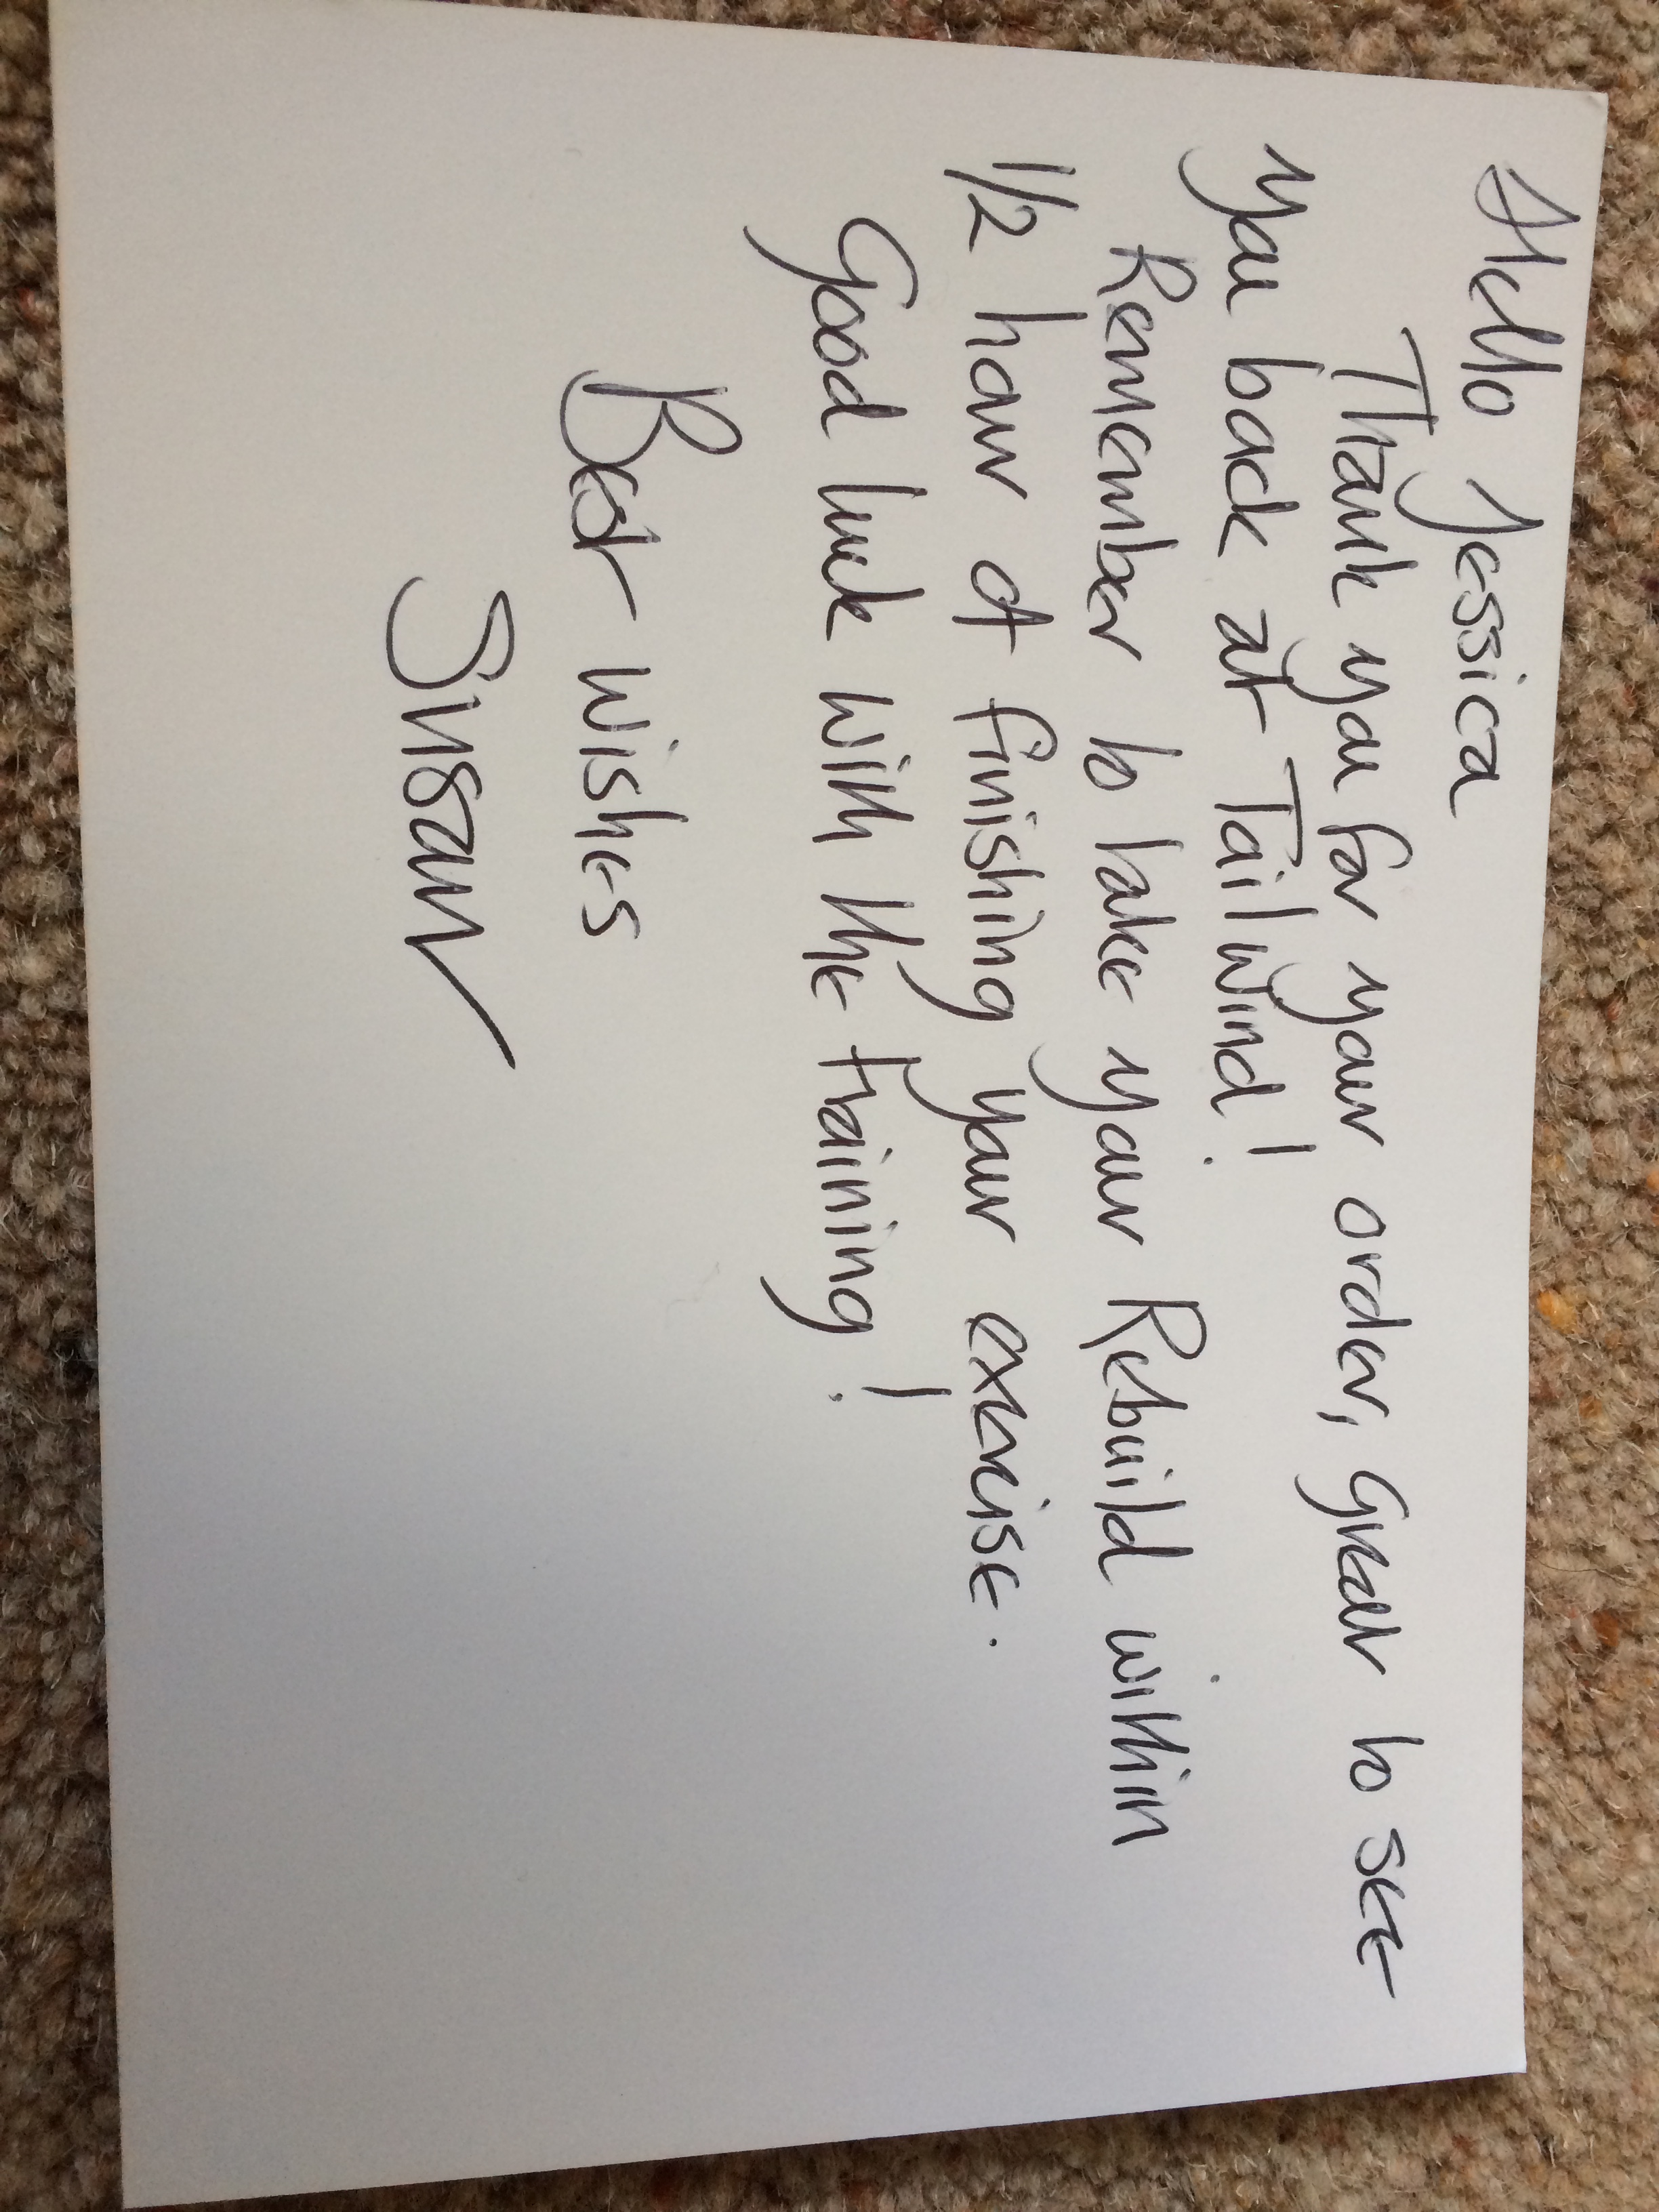 Hello Jessica
Thank you for your order, Great to see
you back at Tailwind!
Remember to take your Rebuild within
1/2 hour of finishing your exercise.
Good luck with the training!
Best wishes
Susan